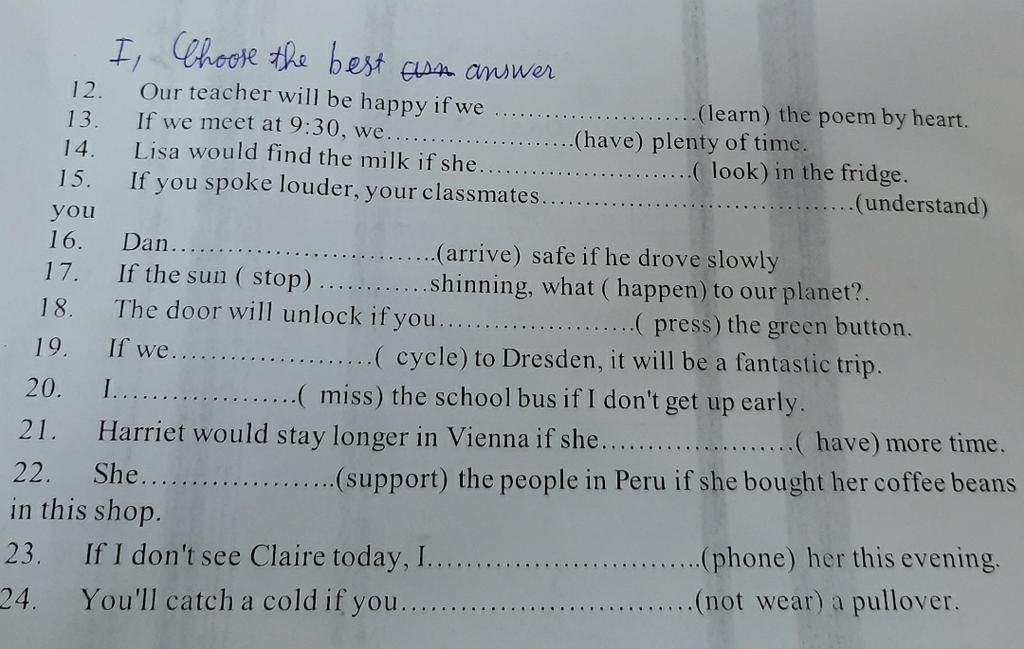 I, Choose the best answer
12. Our teacher will be happy if we ........................(learn) the poem by heart.
13. If we meet at 9:30, we......................(have) plenty of time.
14. Lisa would find the milk if she.........................( look) in the fridge.
15. If you spoke louder, your classmates....................................(understand)
you
16. Dan..............................(arrive) safe if he drove slowly
17. If the sun ( stop) ............shinning, what ( happen) to our planet?.
18. The door will unlock if you......................( press) the green button.
19. If we.......................( cycle) to Dresden, it will be a fantastic trip.
20. I.....................( miss) the school bus if I don't get up early.
21. Harriet would stay longer in Vienna if she.....................( have) more time.
22. She.....................(support) the people in Peru if she bought her coffee beans
in this shop.
23. If I don't see Claire today, I.............................(phone) her this evening.
24. You'll catch a cold if you..............................(not wear) a pullover.